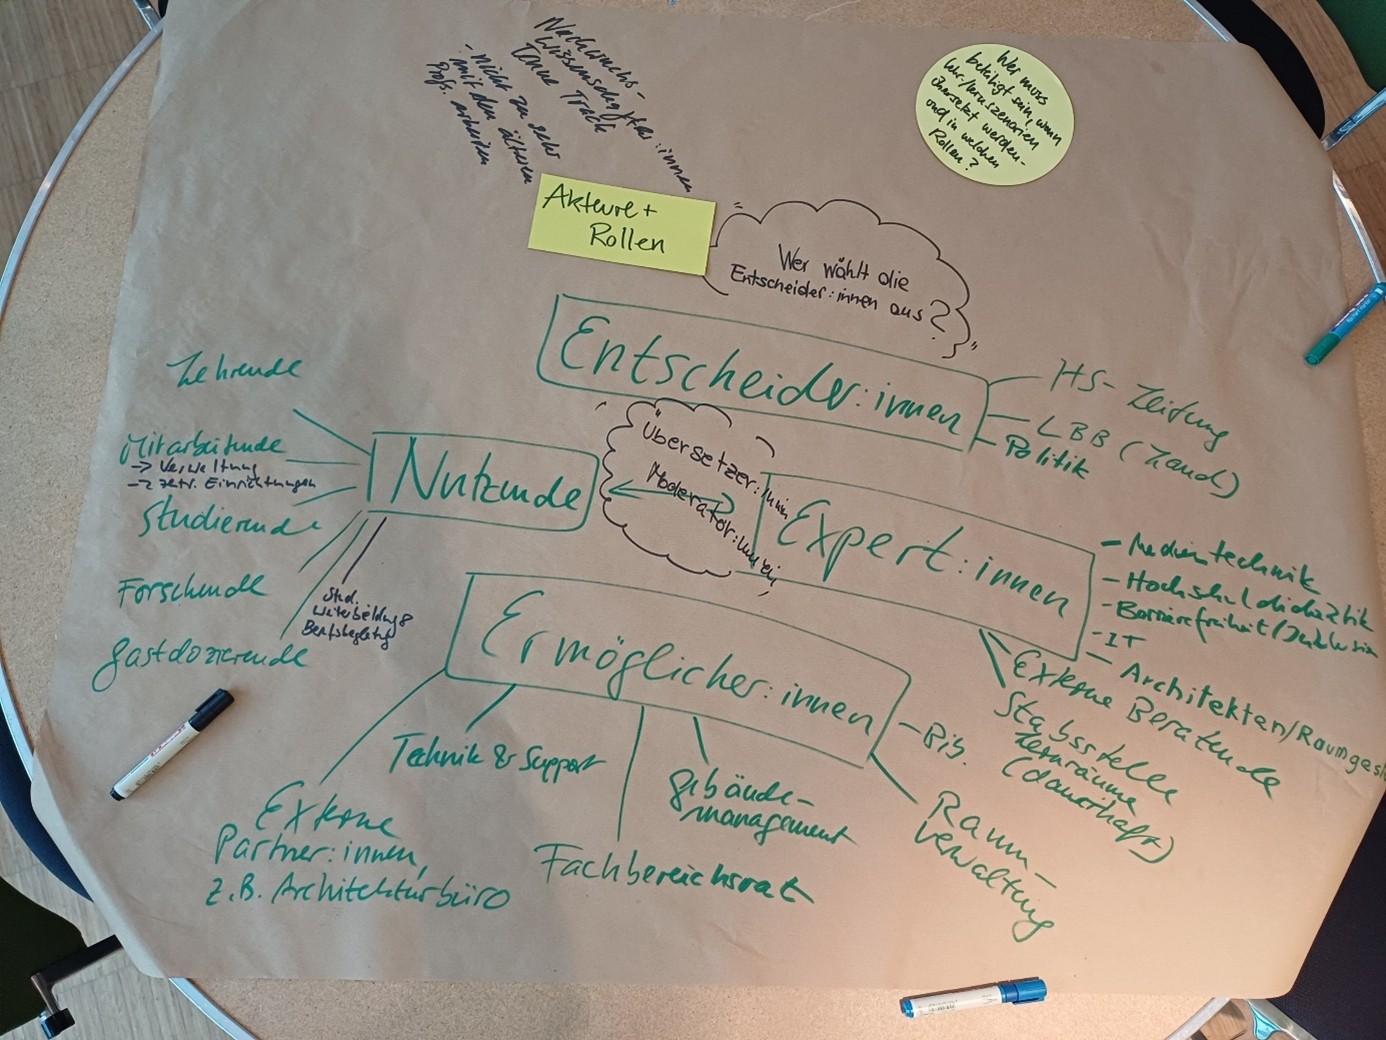 Nachwuchs-
wissenschaftler:innen
Tenure Track
- nicht zu sehr
mit den älteren
Profs. arbeiten
Wer muss
beteiligt sein, wenn
Lehr-/Lernszenarien
übersetzt werden-
und in welchen
Rollen?
Akteure +
Rollen
Wer wählt die
Entscheider:innen aus?
Entscheider:innen
HS-
LBB (Land)
Politik
Lehrende
Mitarbeitende
-> Verwaltung
-> zentr. Einrichtungen
Studierende
Forschende
Gastdozierende
Stud.
Weiterbildung &
Nutzende
Übersetzer:innen
Moderator:innen
Expert:innen
- Medientechnik
- Hochschuldidaktik
- Barrierefreiheit/Inklusion
- IT
- Architekten/Raumgest
Externe Beratende
Stabsstelle
Lernräume
(dauerhaft)
Ermöglicher:innen
Bib.
Raum-
verwaltung
Gebäude-
management
Fachbereichsrat
Technik & Support
Externe
Partner:innen,
z.B. Architekturbüro